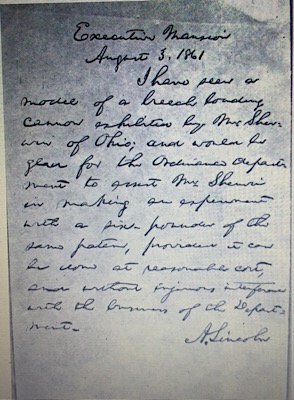 Executive Mansion
August 3, 1861
I have seen a
model of a breech loading
cannon exhibited by Mr. Sher-
win of Ohio; and would be
glad for the Ordnance Depart-
ment to assist Mr. Sherwin
in making an experiment
with a six-pounder of the
same patent, provided it can
be done at reasonable cost,
and without injurious interference
with the business of the Depart-
ment.
A. Lincoln